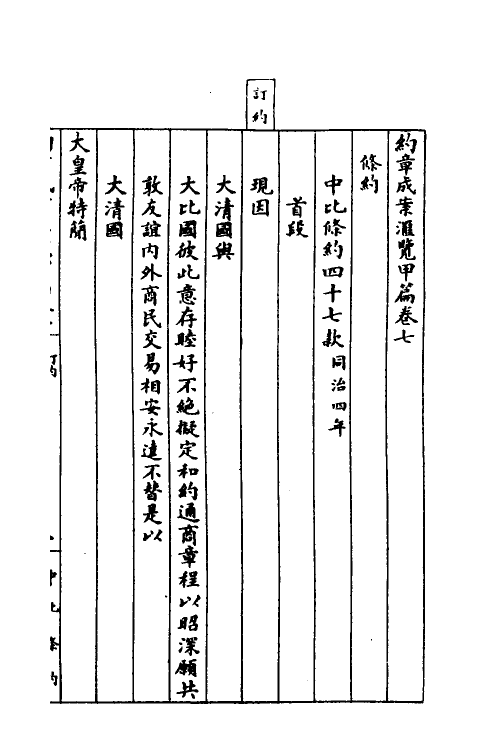 訂約
約章成案滙覽甲篇卷七
條約
中比條約四十七款同治四年
首段
現因
大清國與
大比國彼此意存睦好不絕擬定和約通商章程以昭深願共
敦友誼內外商民交易相安永遠不替是以
大清國
大皇帝特簡
訂約
中比條約